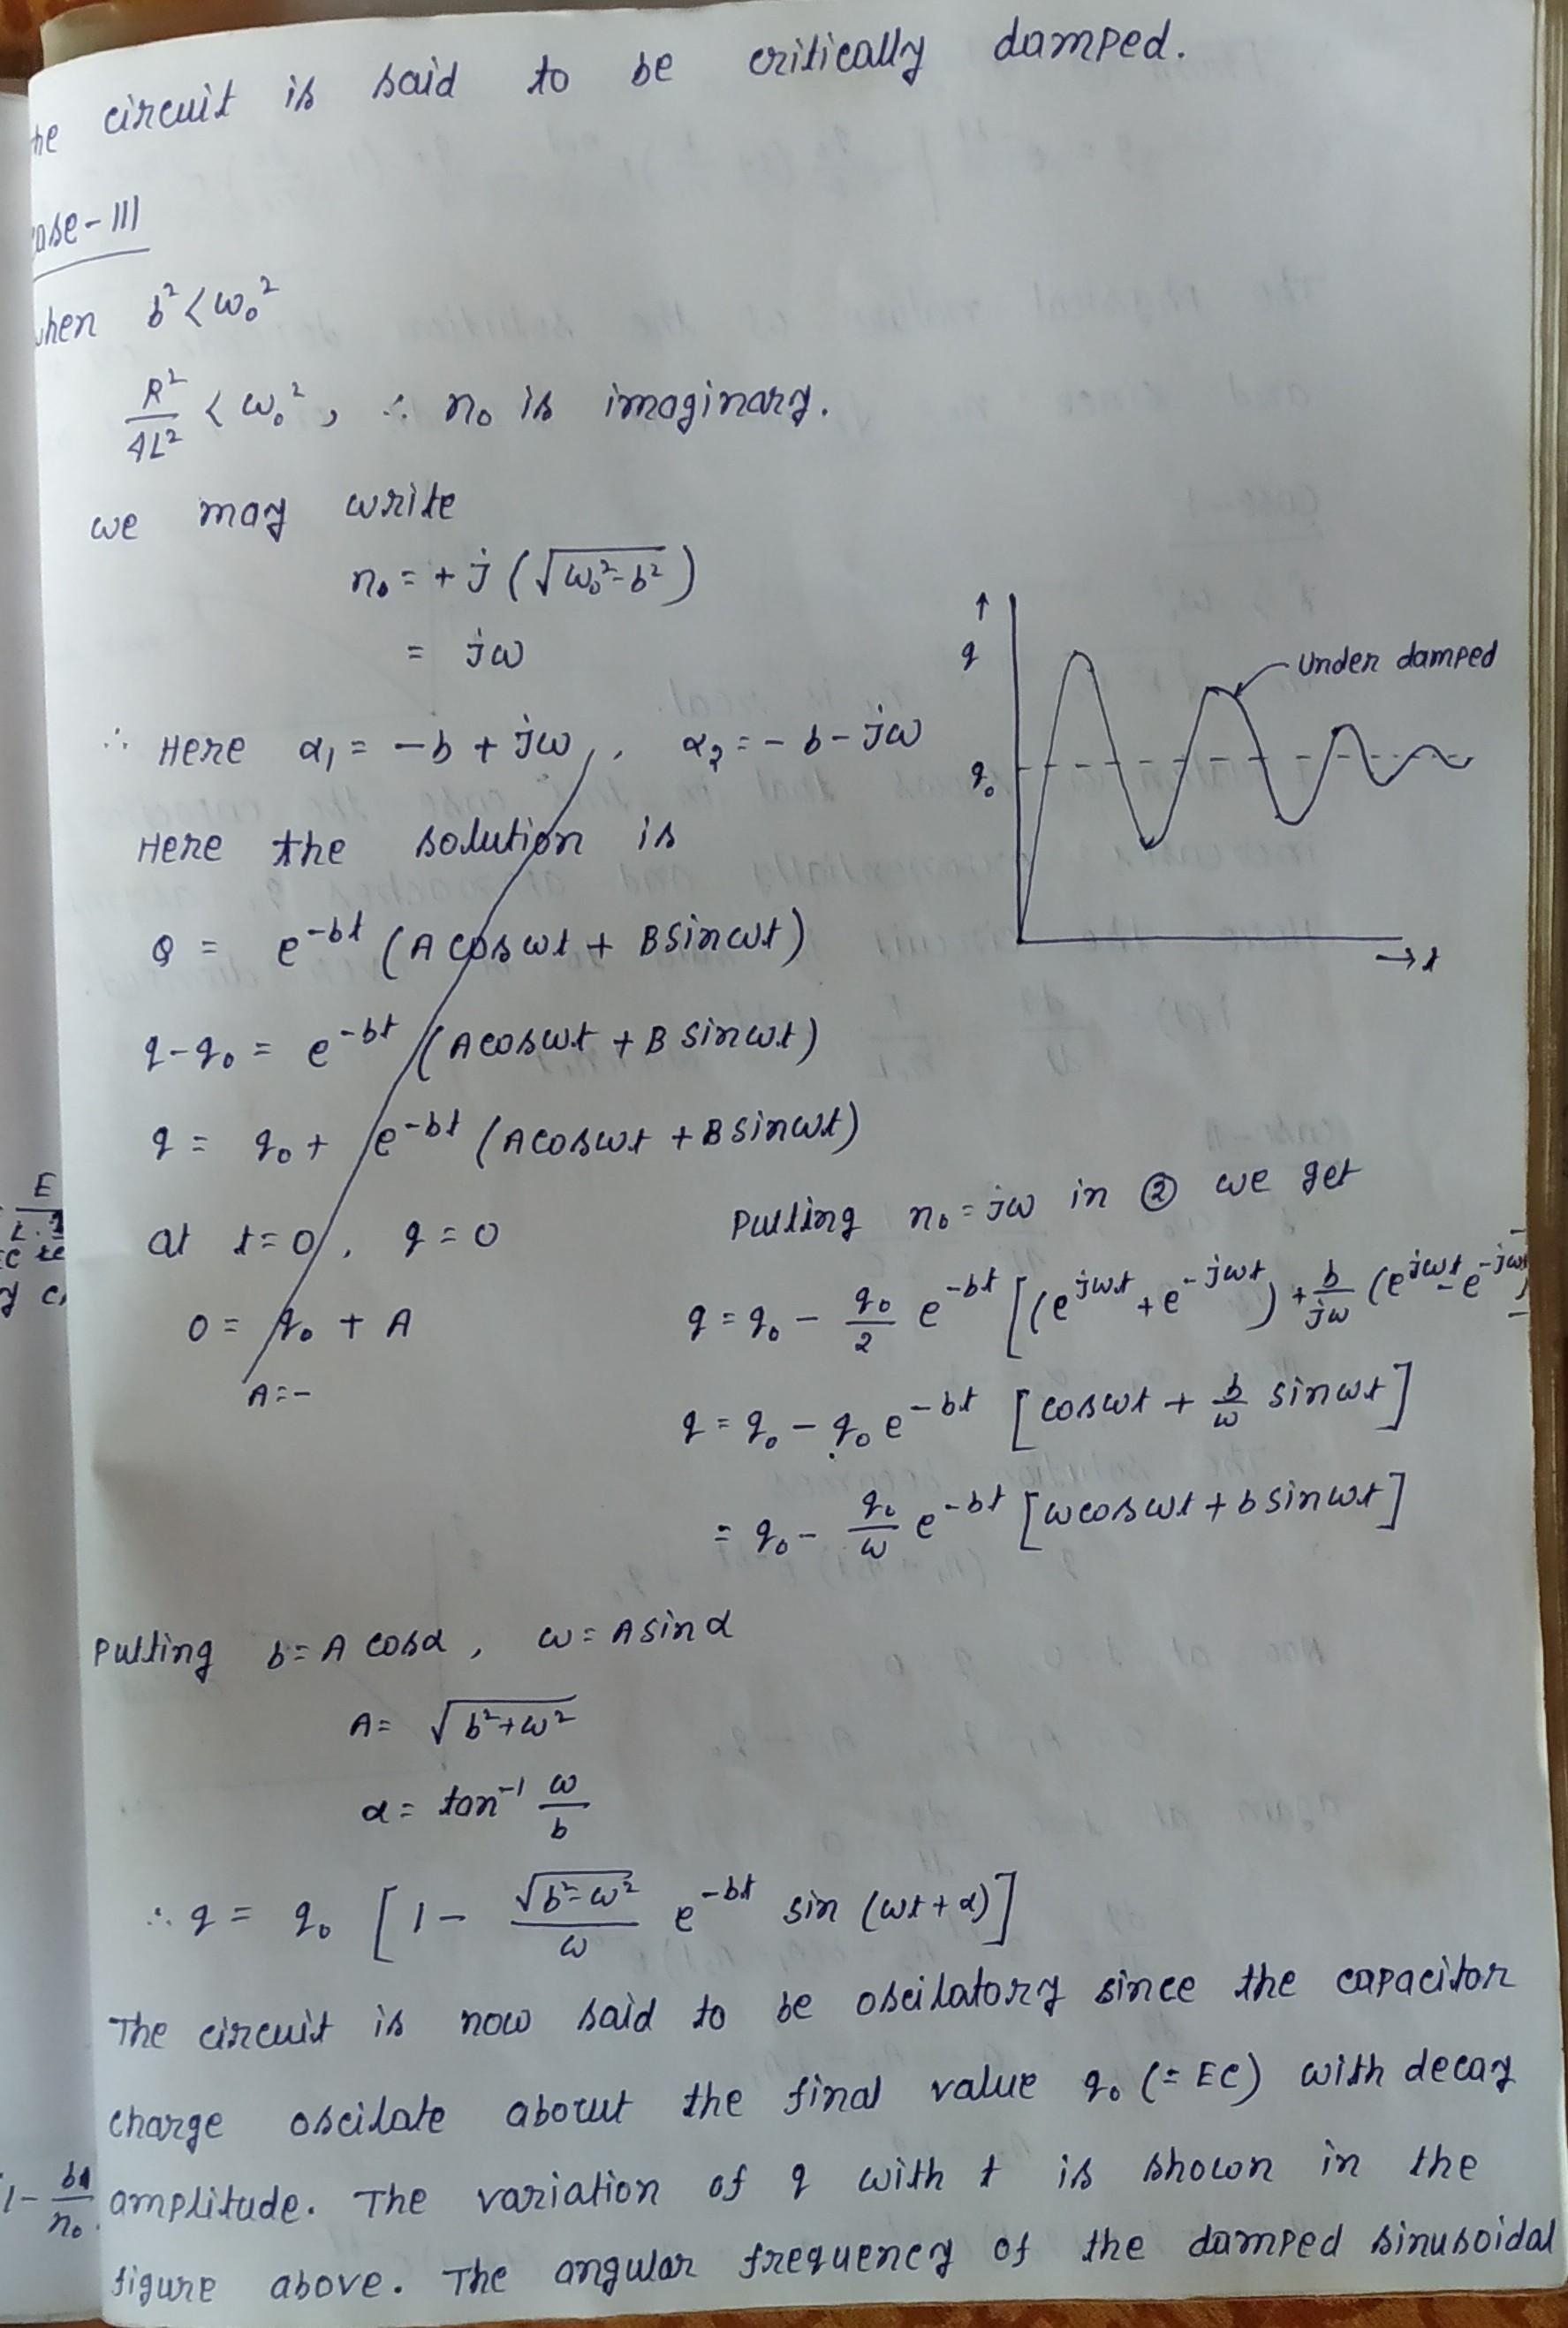 he circuit is said to be critically damped.
case-III
when b² < ω₀²
R²/4L² < ω₀², ∴ n₀ is imaginary.
we may write
n₀ = + j (√ω₀²-b²)
= jω
∴ Here α₁ = -b + jω, α₂ = - b - jω
Here the solution is
Q = e^-bt (A cosωt + B sinωt)
q-q₀ = e^-bt (A cosωt + B sinωt)
q = q₀ + e^-bt (A cosωt + B sinωt)
at t=0, q=0
0 = q₀ + A
A = -
↑
q
q₀
Under damped
→ t
Putting n₀ = jω in ② we get
q = q₀ - q₀/2 e^-bt [(e^jωt + e^-jωt) + b/jω (e^jωt - e^-jωt)
q = q₀ - q₀ e^-bt [cosωt + b/ω sinωt]
= q₀ - q₀/ω e^-bt [ωcosωt + b sinωt]
Putting b = A cosα, ω = A sinα
A = √b²+ω²
α = tan⁻¹ ω/b
∴ q = q₀ [1 - √b²-ω²/ω e^-bt sin (ωt + α)]
The circuit is now said to be oscilatory since the capacitor
charge oscilate about the final value q₀ (= EC) with decay
amplitude. The variation of q with t is shown in the
figure above. The angular frequency of the damped sinusoidal